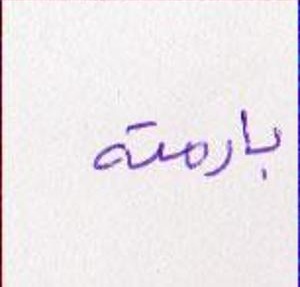 بارمته